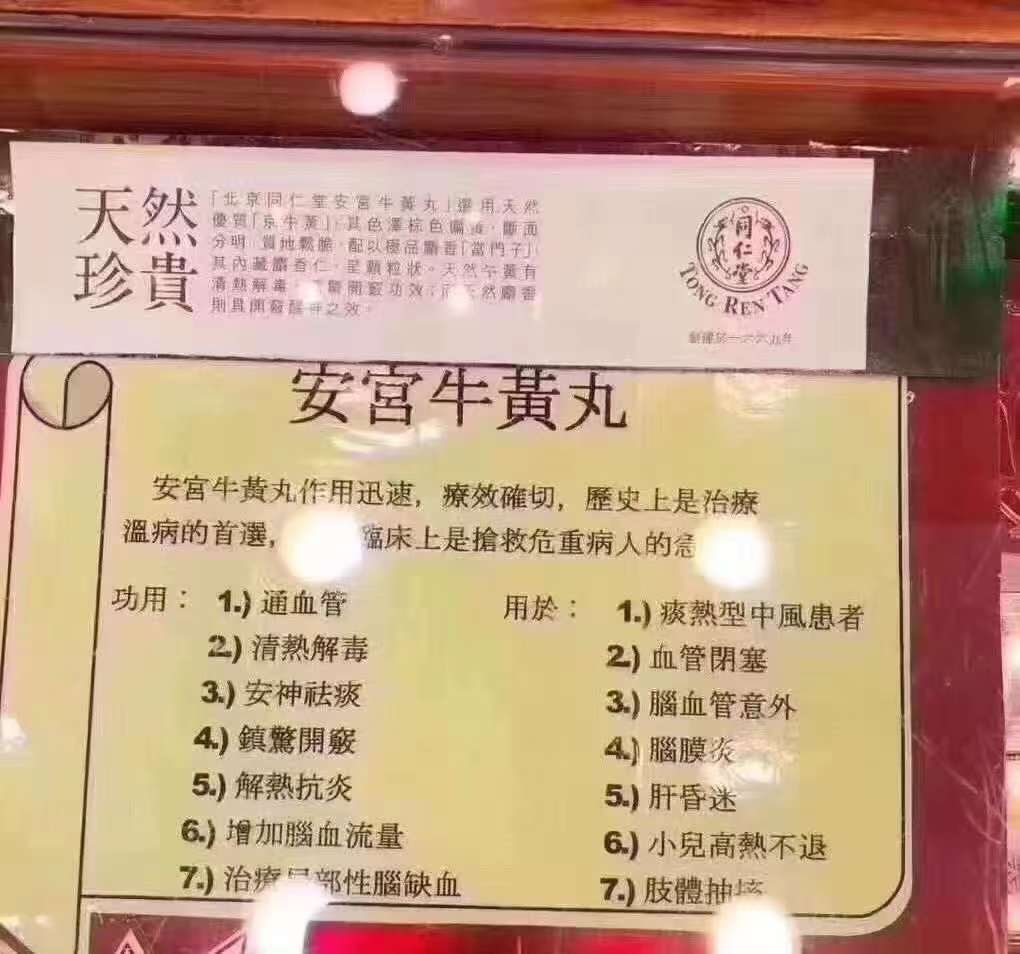 天然
珍貴
「北京同仁堂安宮牛黃丸」選用天然
優質「京牛黃」,其色澤棕色偏黃,斷面
分明,質地鬆脆,配以極品麝香「當門子」,
其內藏麝香仁,呈顆粒狀。天然牛黃有
清熱解毒,驚開竅功效;而天然麝香
則具開竅醒神之效。
同仁堂
TONG REN TANG
創建於一六六九年
安宮牛黃丸
安宮牛黃丸作用迅速,療效確切,歷史上是治療
溫病的首選,臨床上是搶救危重病人的急
功用:
1.) 通血管
2.) 清熱解毒
3.) 安神祛痰
4.) 鎮驚開竅
5.) 解熱抗炎
6.) 增加腦血流量
7.) 治療局部性腦缺血
用於:
1.) 痰熱型中風患者
2.) 血管閉塞
3.) 腦血管意外
4.) 腦膜炎
5.) 肝昏迷
6.) 小兒高熱不退
7.) 肢體抽